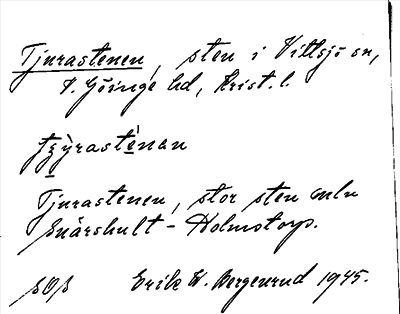 Tjurastenen, sten i Vittsjö sn,
V. Göinge hd, Krist. l.
Tjurastenen, stor sten
Snärshult - Holmstorp.
Erik W. Bergenrud 1945.